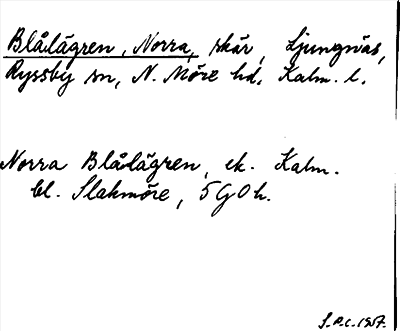 Blålägren, Norra, skär, Ljungnäs,
Ryssby sn, N. Möre hd. Kalm. l.
Norra Blålägren, ek. Kalm.
bl. Slakmöre, 5 G 0 h.
S.P.C. 1957.